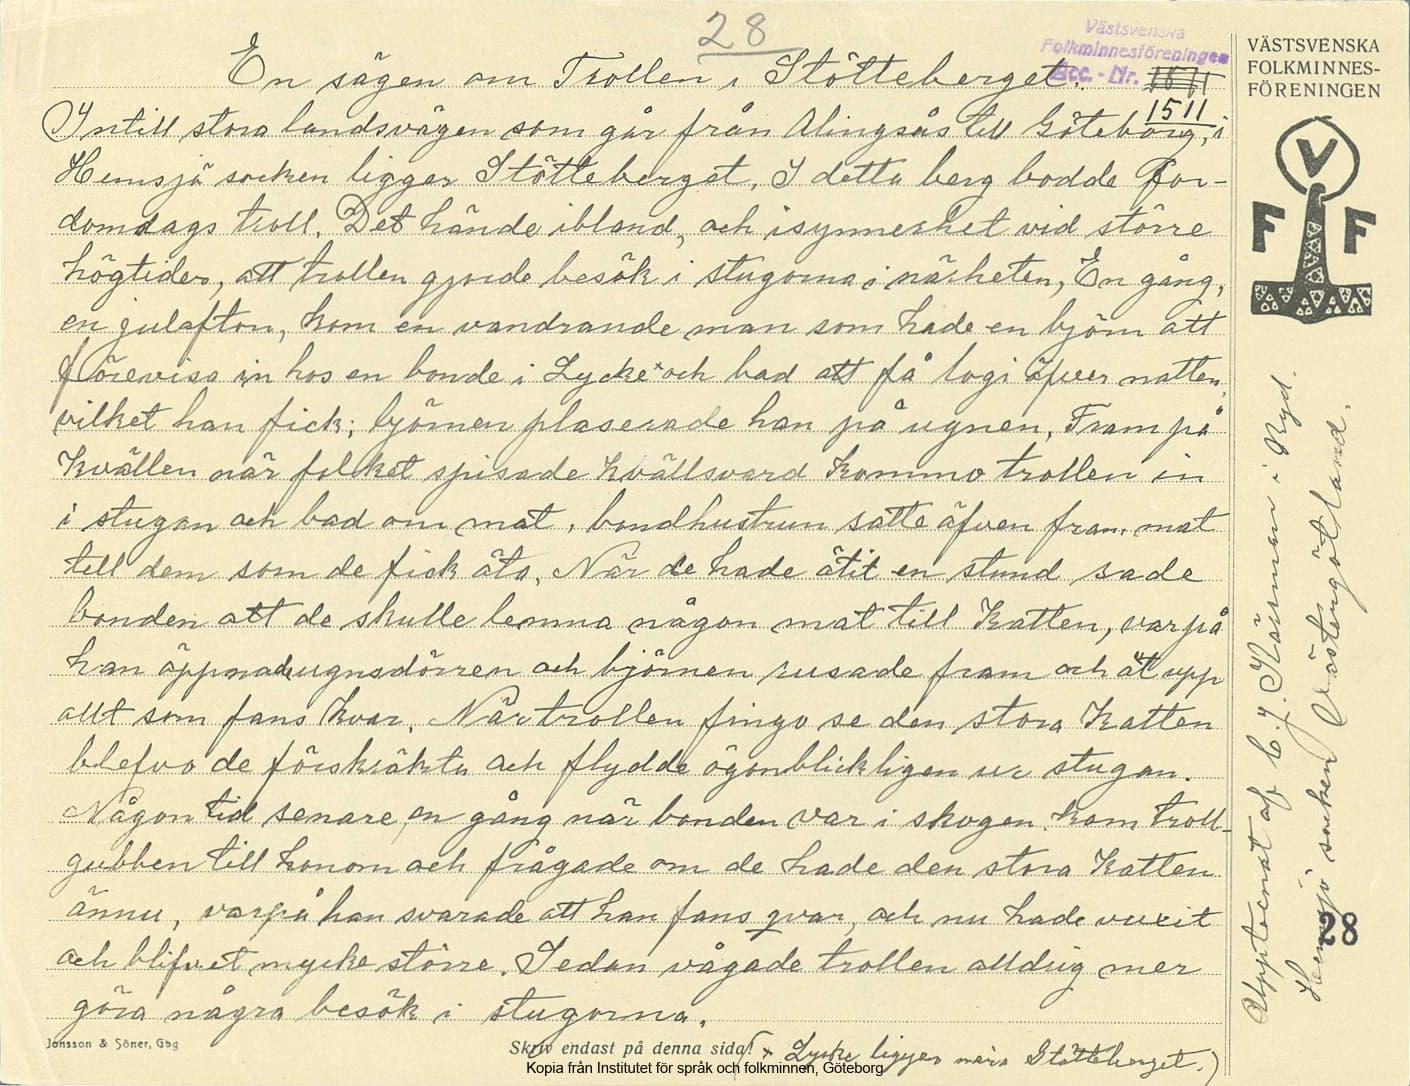 28
Västsvenska
Folkminnesföreningen
Acc. - Nr. 1511
1511
VÄSTSVENSKA
FOLKMINNES-
FÖRENINGEN
V
F F
En sägen om Trollen i Stötteberget.
Intill stora landsvägen som går från Alingsås till Göteborg, i
Hemsjö socken ligger Stötteberget. I detta berg bodde for-
domdags troll. Det hände ibland, och isynnerhet vid större
högtider, att trollen gjorde besök i stugorna i närheten, En gång,
en julafton, kom en vandrande man som hade en björn att
förevisa in hos en bonde i Lycke x och bad att få logi äfver natten,
vilket han fick; björnen plaserade han på ugnen, Fram på
kvällen när folket spisade kvällsvard kommo trollen in
i stugan och bad om mat, bondhustrun satte äfven fram mat
till dem som de fick äta, När de hade ätit en stund sade
bonden att de skulle lemna någon mat till Katten, varpå
han öppnade ugnsdörren och björnen rusade fram och åt upp
allt som fans kvar. När trollen fingo se den stora Katten
blefvo de förskräkta och flydde ögonblickligen ur stugan.
Någon tid senare, en gång när bonden var i skogen kom troll-
gubben till honom och frågade om de hade den stora Katten
ännu, varpå han svarade att han fans qvar, och nu hade vuxit
och blifvet mycke större. Sedan vågade trollen alldrig mer
göra några besök i stugorna.
Jonsson & Söner, Gbg
Skriv endast på denna sida!
(x Lycke ligger nära Stötteberget.)
Kopia från Institutet för språk och folkminnen, Göteborg
Upptecnat af C. J. Kärrman i Ryd.
Hemsjö socken Västergötland.
28